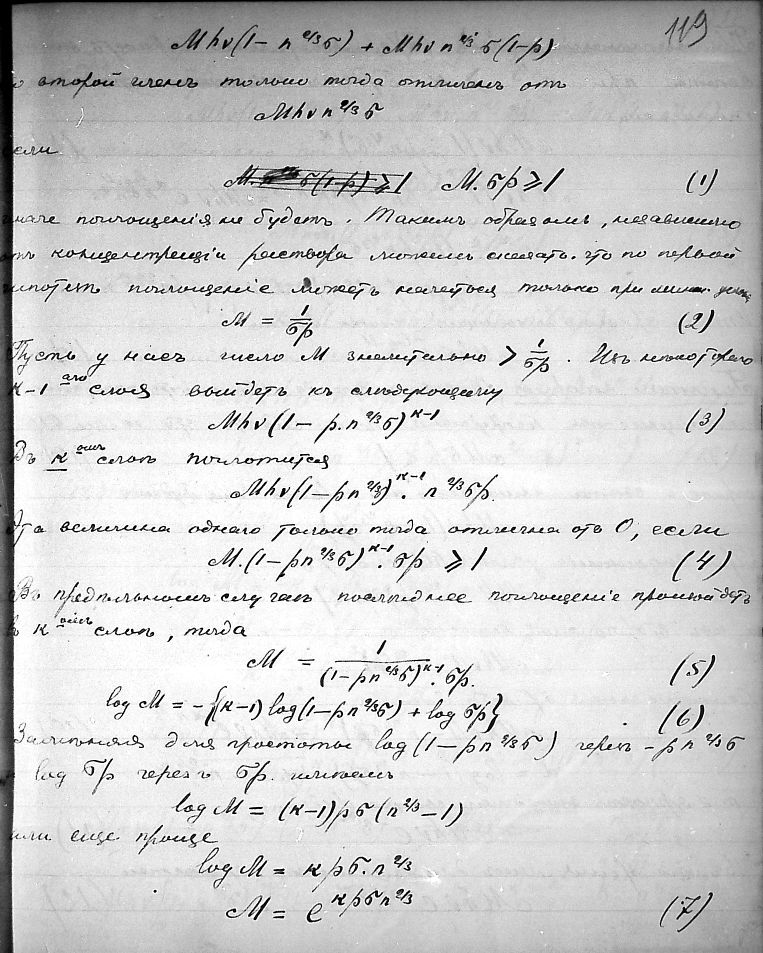 119
Mhν(1 − n^2/3 σ) + Mhν n^2/3 σ(1−p)
второй членъ только тогда отличенъ отъ
Mhν n^2/3 σ
если
M. σ(1−p) ⩾ 1 M. σp ⩾ 1 (1)
иначе поглощенія не будетъ. Такимъ образомъ, независимо
отъ концентраціи раствора можемъ сказать. что по первой
гипотезѣ поглощеніе можетъ начаться только при
M = 1/σp (2)
Пусть у насъ число M значительно > 1/σp. Изъ некотораго
к−1 аго слоя выйдетъ къ слѣдующему
Mhν(1 − p.n^2/3 σ)^к−1 (3)
Въ к омъ слоѣ поглотится
Mhν(1−pn^2/3 σ)^к−1. n^2/3 σp.
Эта величина однако только тогда отлична отъ 0, если
M.(1−pn^2/3 σ)^к−1. σp ⩾ 1 (4)
Въ предѣльномъ случаѣ последнее поглощеніе произойдетъ
въ к омъ слоѣ, тогда
M = 1/(1−pn^2/3 σ)^к−1. σp. (5)
log M = −{(к−1) log(1−pn^2/3 σ) + log σp} (6)
Замѣняя для простоты log(1−pn^2/3 σ) черезъ −pn^2/3 σ
и log σp черезъ σp. имѣемъ
log M = (к−1)pσ(n^2/3 −1)
или еще проще
log M = кpσ.n^2/3
M = e^кpσn^2/3 (7)